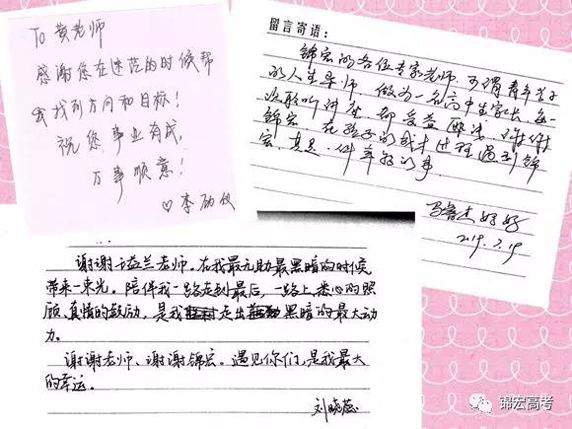 To 黄老师
感谢您在迷茫的时候帮
我找到方向和目标！
祝您事业有成，
万事顺意！
♡李
留言寄语：
锦宏的各位专家老师，可谓青年学子
的人生导师，做为一名高中生家长，每一
次聆听讲座都受益匪浅，谢谢
锦宏，在孩子的成才进程遇到锦
宏，真是一件幸福的事。
妈妈
2019.2.19
谢谢兰老师。在我最无助最黑暗的时候
带来一束光。陪伴我一路走到最后，一路上悉心的照
顾、真情的鼓励，是我走出黑暗的最大动
力。
谢谢老师、谢谢锦宏。遇见你们，是我最大
的幸运。
刘晓蕊
锦宏高考